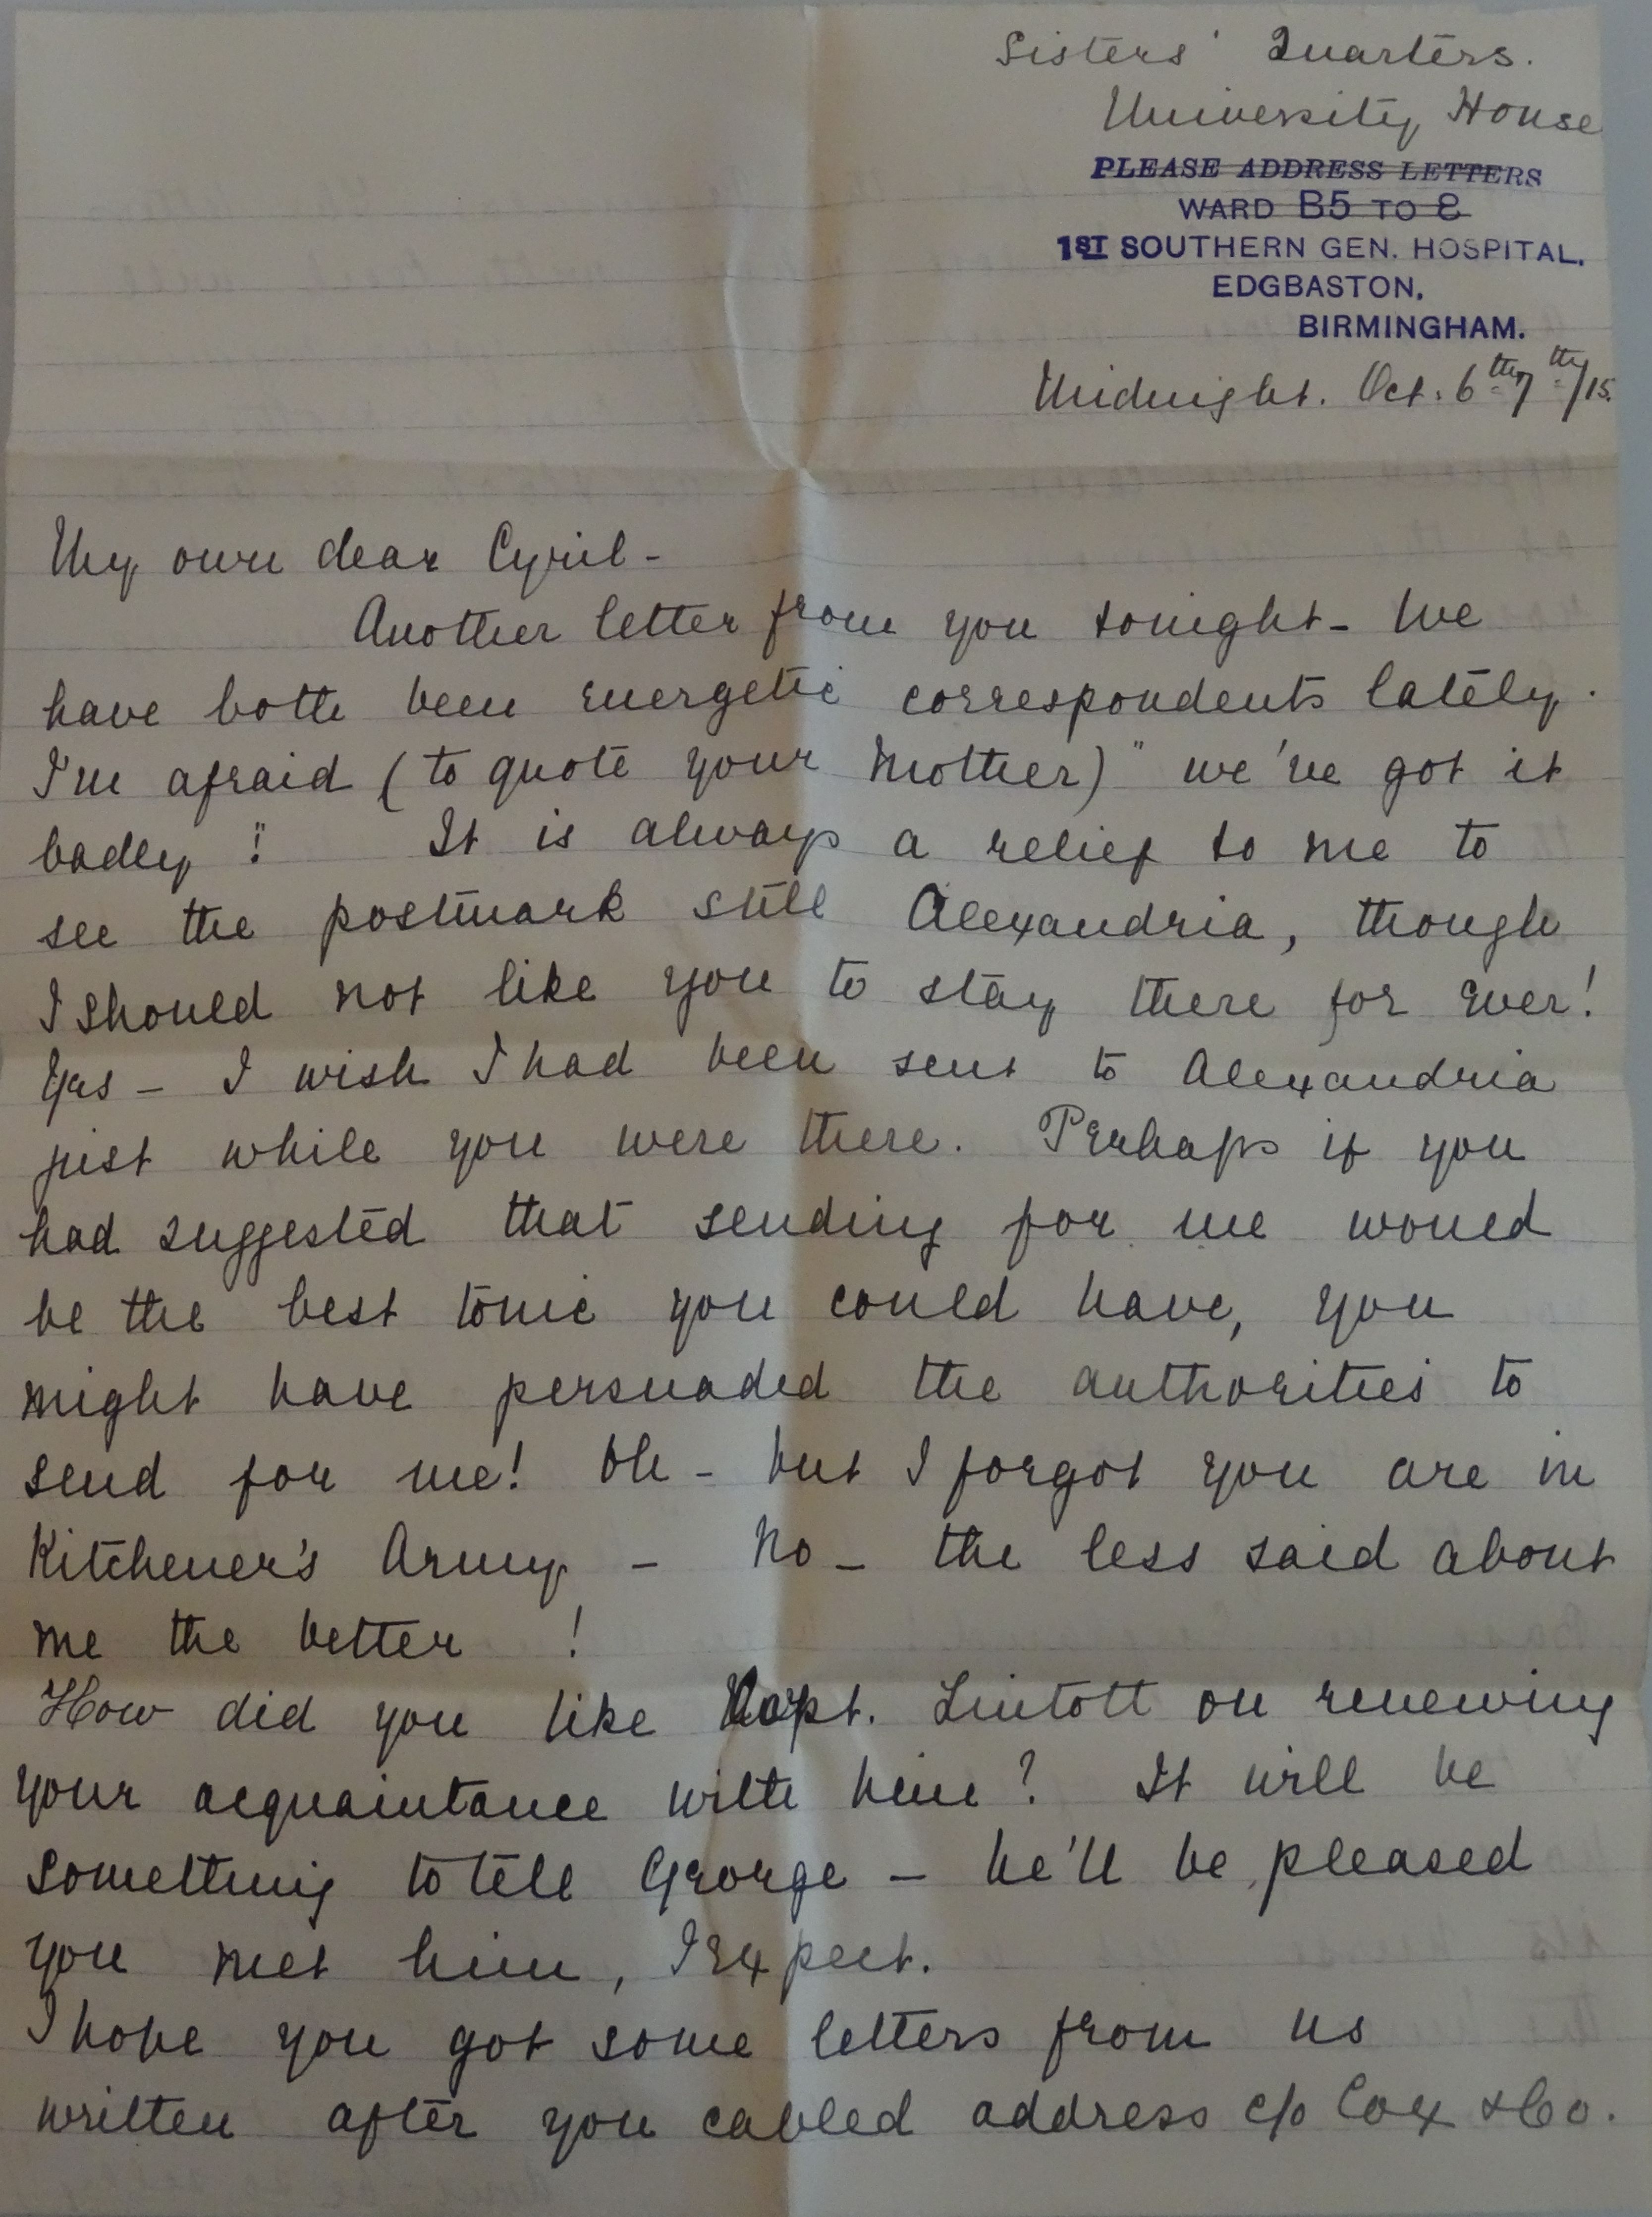 Sisters' Quarters.
University House
PLEASE ADDRESS LETTERS
WARD B5 TO 8
1ST SOUTHERN GEN. HOSPITAL,
EDGBASTON,
BIRMINGHAM.
Midnight. Oct. 6th 7th/15.
My own dear Cyril -
Another letter from you tonight - We
have both been energetic correspondents lately.
I'm afraid (to quote your Mother) "we've got it
badly"! It is always a relief to me to
see the postmark still Alexandria, though
I should not like you to stay there for ever!
Yes - I wish I had been sent to Alexandria
just while you were there. Perhaps if you
had suggested that sending for me would
be the best tonic you could have, you
might have persuaded the authorities to
send for me! Oh - but I forgot you are in
Kitchener's Army - No - the less said about
me the better !
How did you like Capt. Lintott on renewing
your acquaintance with him? It will be
something to tell George - he'll be pleased
you met him, I expect.
I hope you got some letters from us
written after you cabled address c/o Cox & Co.